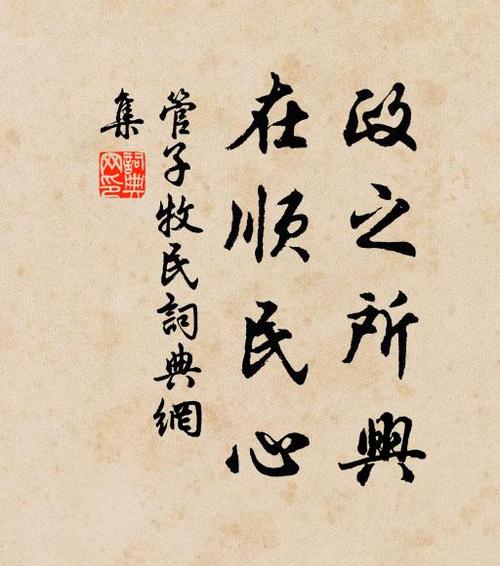 政之所興
在順民心
管子牧民詞典網
集
詞典
网印